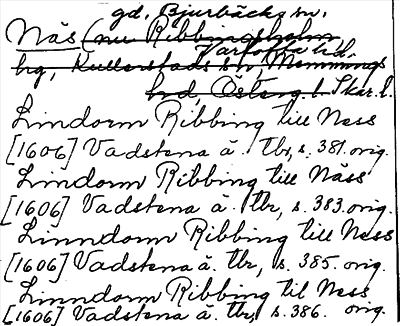 gd. Bjurbäcks sn.
Näs (nu Ribbingsholm
Vartofta hd.
hg, Kullerstads sn, Memmings
hd, Österg. l. Skar. l.
Lindorm Ribbing till Ness
[1606] Vadstena ä. tbr, s. 381. orig.
Lindorm Ribbing till Näss
[1606] Vadstena ä. tbr, s. 383. orig.
Linndorm Ribbing till Ness
[1606] Vadstena ä. tbr, s. 385. orig.
Linndorm Ribbing til Ness
[1606] Vadstena ä. tbr, s. 386. orig.